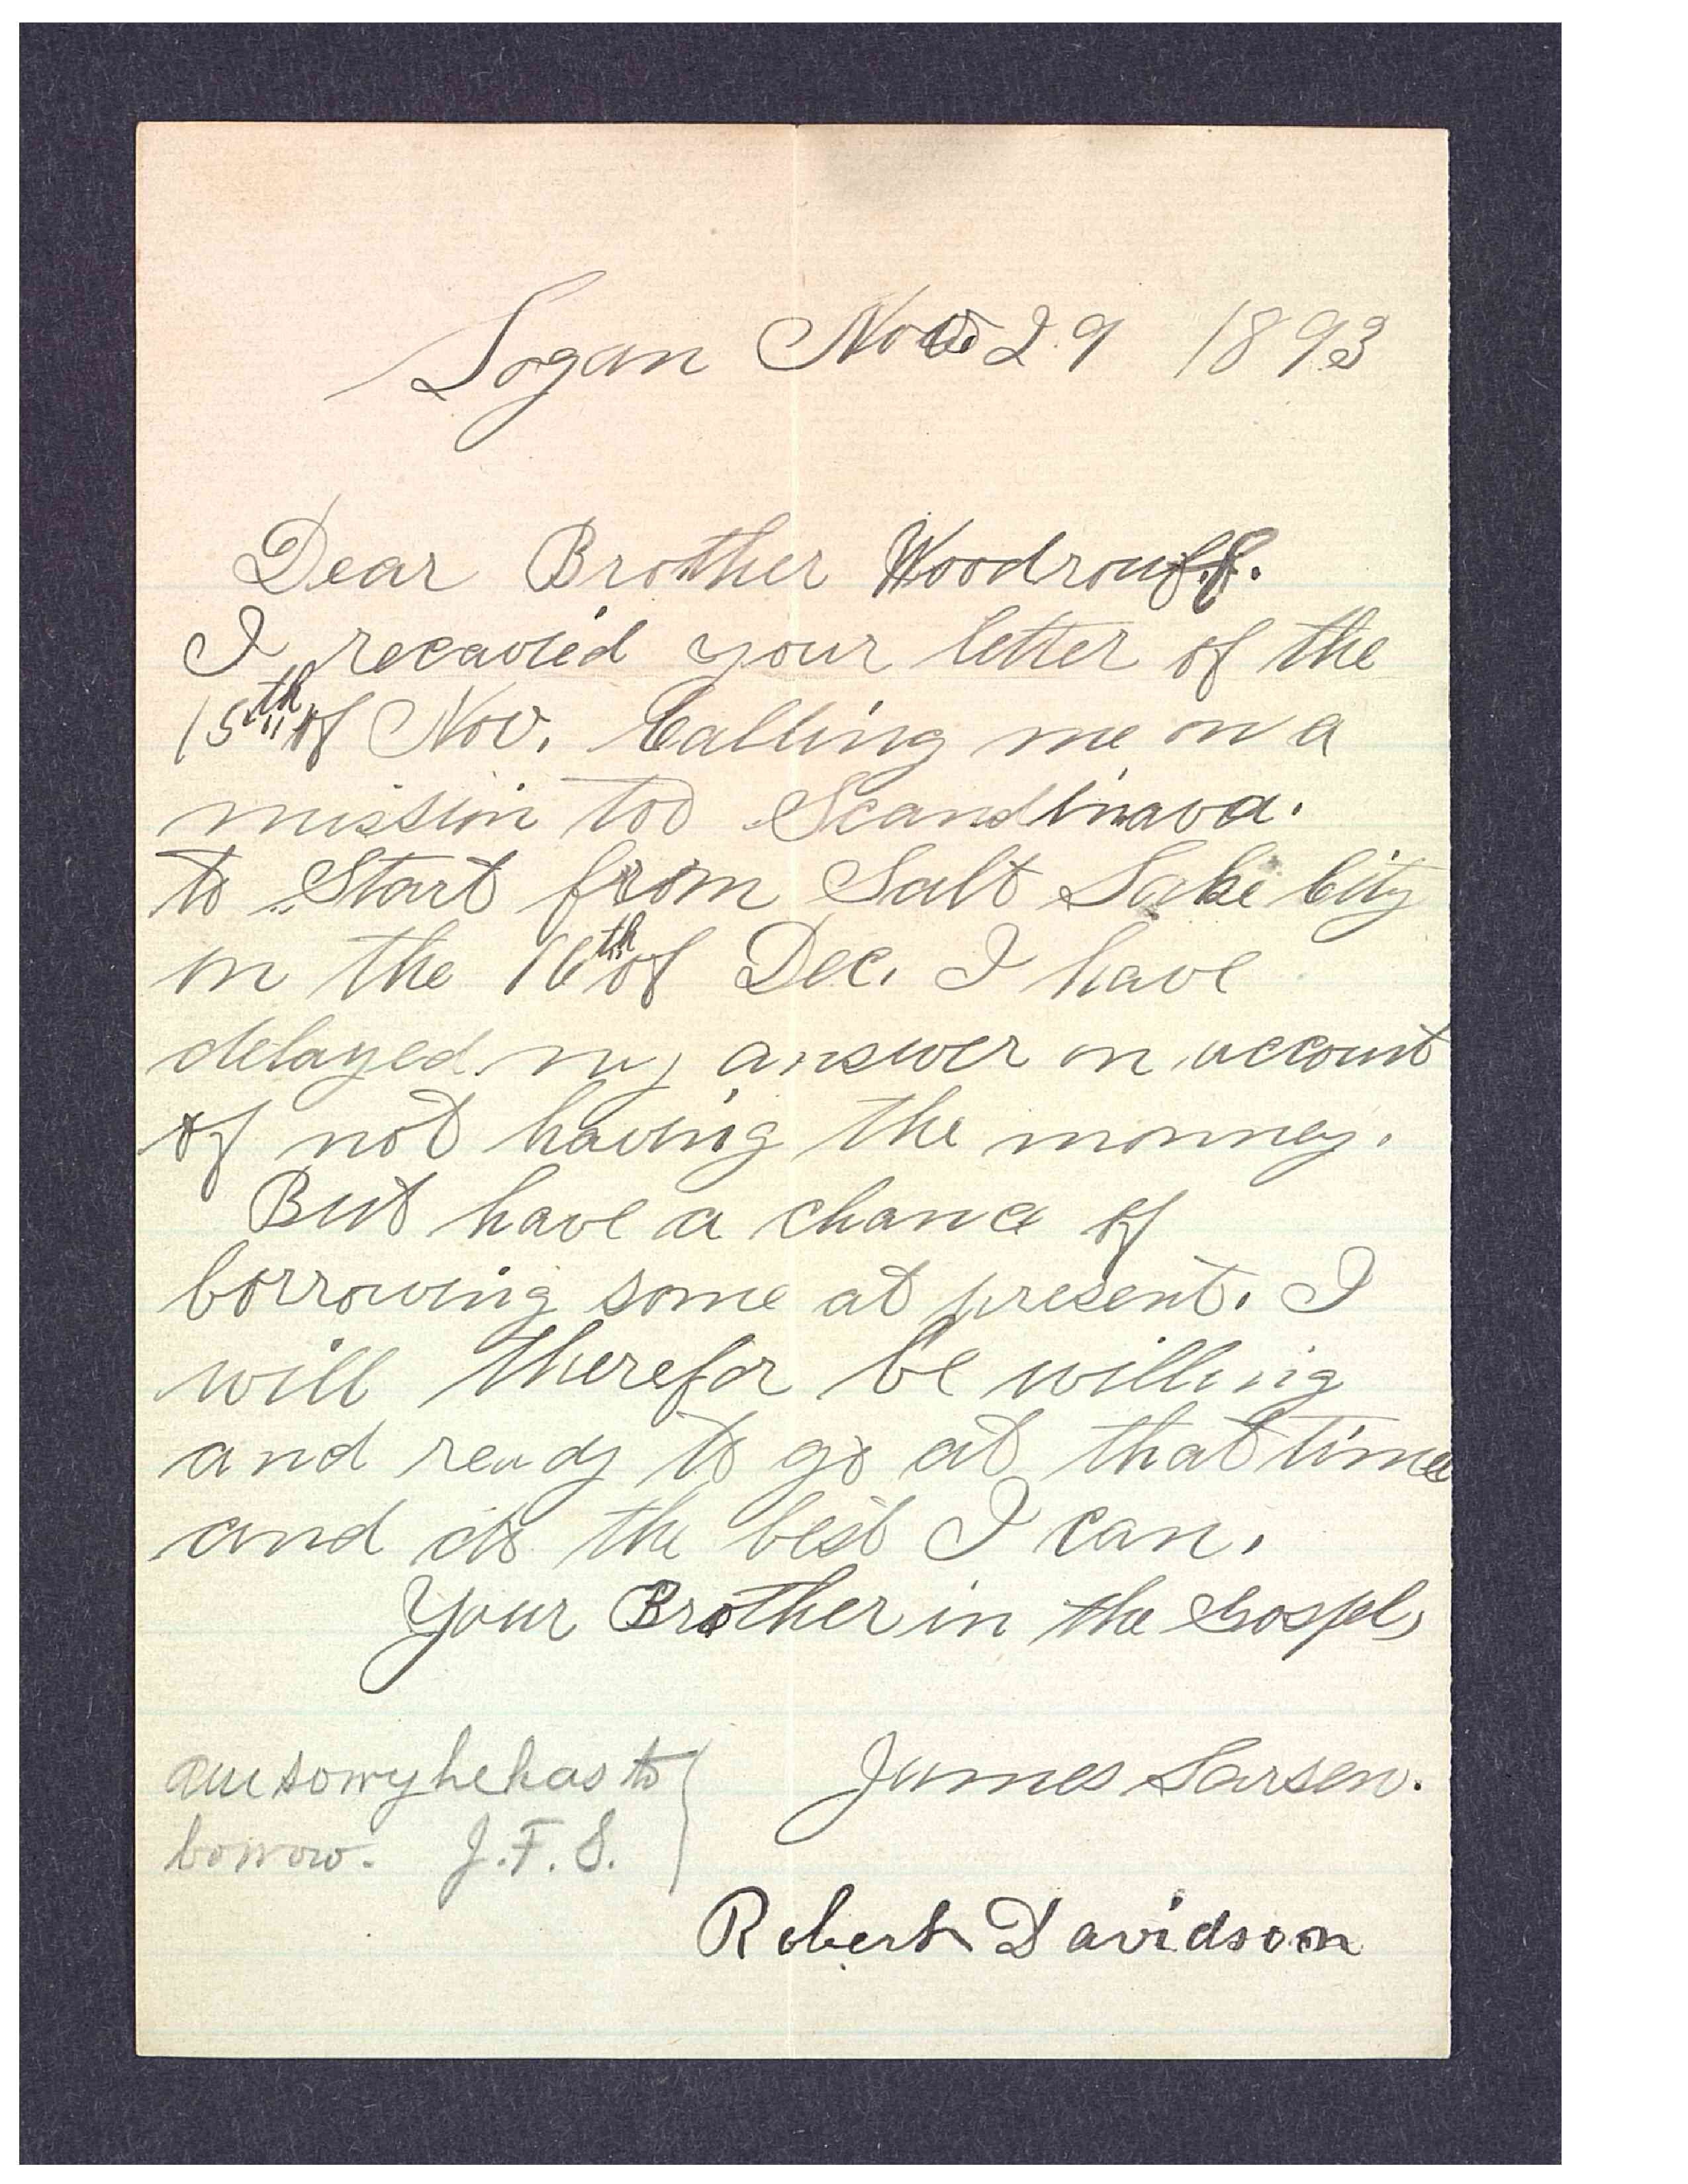 Logan Nov 29 1893
Dear Brother Woodrouff.
I recavied your letter of the
15th of Nov. Calling me on a
mission too Scandinava.
to Start from Salt Lake City
on the 16th of Dec. I have
delayed my answer on account
of not having the monney.
But have a chance of
borrowing some at present. I
will therefor be willing
and ready to go at that time
and do the best I can.
Your Brother in the Gospel,
James Larsen.
am sorry he has to
borrow. J.F.S.
Robert Davidson